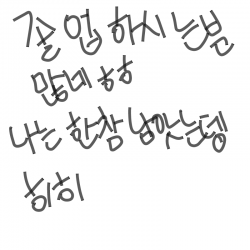 졸업하시는분
많네 ㅎㅎ
나는 한참 남앗는뎅
히히